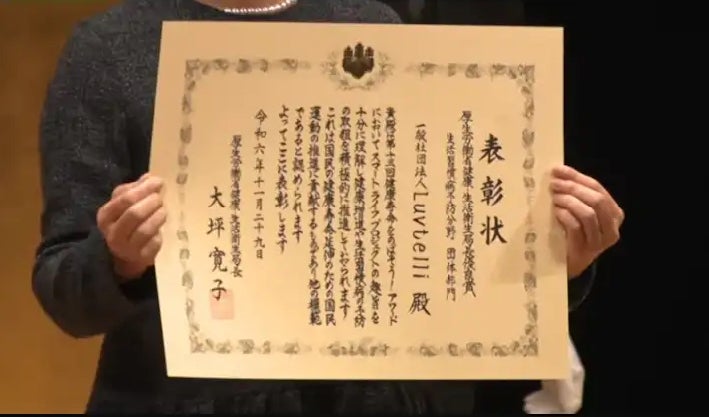 表彰状
厚生労働省健康・生活衛生局長優良賞
生活習慣病予防分野 団体部門
一般社団法人Luvtelli 殿
貴殿は第十三回健康寿命をのばそう!アワード
においてスマート・ライフ・プロジェクトの趣旨を
十分に理解し健康増進や生活習慣病の予防
の取組を積極的に推進しておられます
これは国民の健康寿命延伸のための国民
運動の推進に貢献するものであり他の模範
であると認められます
よってここに表彰します
令和六年十一月二十九日
厚生労働省健康・生活衛生局長
大坪寛子